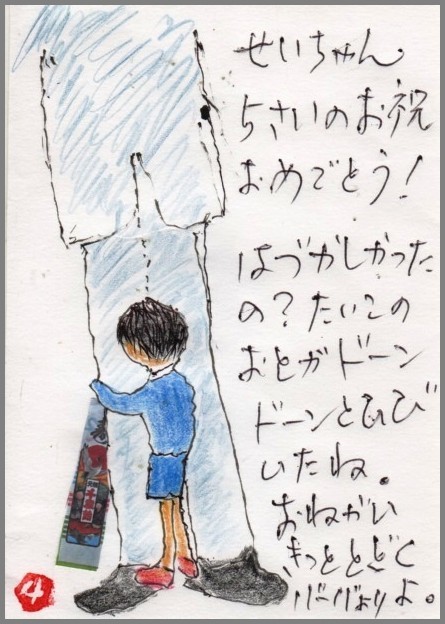 せいちゃん
5さいのお祝
おめでとう！
はづかしかった
の？たいこの
おとがドーン
ドーンとひび
いたね。
おねがい
きっととどく
よ。
バーバより
4